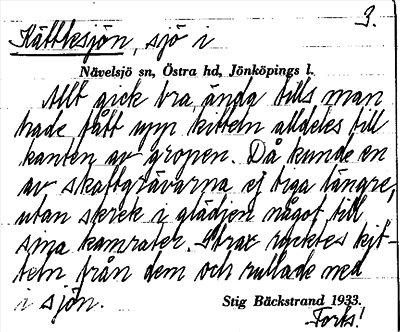 3.
Kättlesjön, sjö i
Nävelsjö sn, Östra hd, Jönköpings l.
Allt gick bra ända tills man
hade fått upp kitteln alldeles till
kanten av gropen. Då kunde en
av skattgrävarna ej tiga längre,
utan skrek i glädjen något till
sina kamrater. Strax rycktes kit-
teln från dem och rullade ned
i sjön.
Stig Bäckstrand 1933.
Forts!